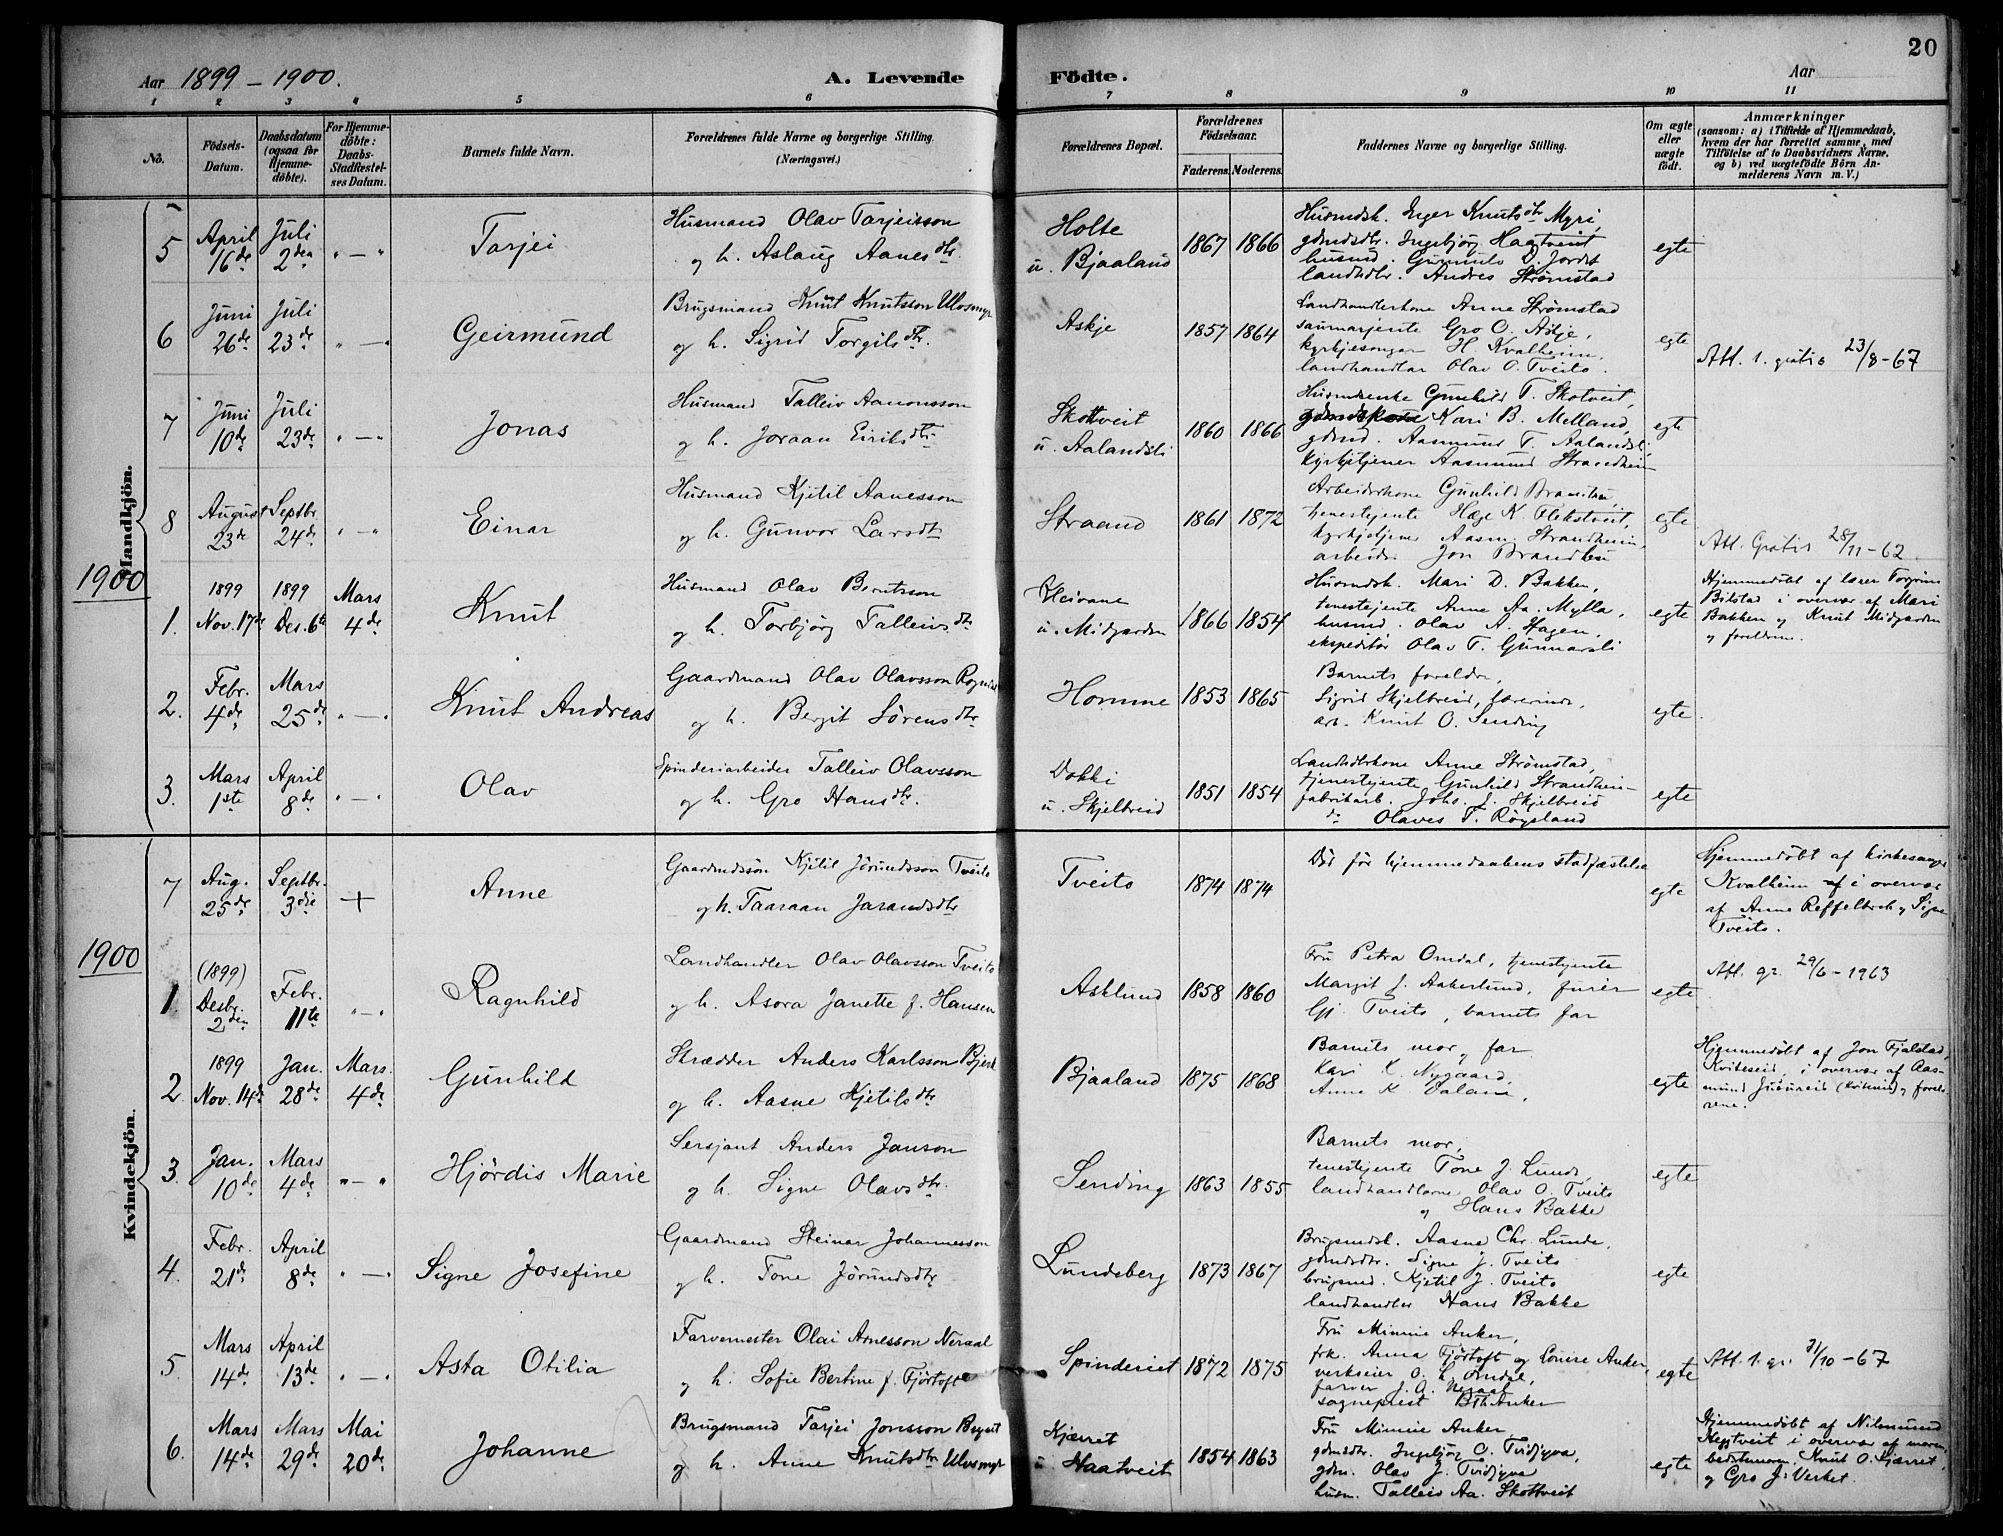 20
Aar 1899 - 1900.
A. Levende Födte.
Aar
1 2 3 4 5 6 7 8 9 10 11
No.
Födsels-Datum.
Daabsdatum (ogsaa for Hjemme-döbte).
For Hjemme-döbte: Daabs-Stadfæstel-ses Datum.
Barnets fulde Navn.
Forældrenes fulde Navne og borgerlige Stilling. (Næringsvei.)
Forældrenes Bopæl.
Forældrenes Födselsaar.
Faderens. Moderens.
Faddernes Navne og borgerlige Stilling.
Om ægte eller uægte födt.
Anmærkninger
(saasom: a) i Tilfælde af Hjemmedaab, hvem der har forrettet samme, med Tilföielse af to Daabsvidners Navne, og b) ved uægtefödte Börn An-melderens Navn m. V.)
Mandkjön.
5 April 16de Juli 2den " — " Tarjei
Husmand Olav Tarjeisson
og h. Aslaug Aanesdtr.
Holte u. Bjaaland 1867 1866
Husmdsk. Inger Knutsdtr Myri,
gdmdsdtr. Ingebjørg Haatveit
husmd. Gunnulv D. Jordet
landhdlr. Andres Strømstad
egte
6 Juni 26de Juli 23de " — " Geirmund
Brugsmand Knut Knutsson Ulvsmyr
og h. Sigrid Torgilsdtr.
Askje 1857 1864
Landhandlerkone Anne Strømstad
saumarjente Gro O. Askje,
kyrkjesongar H. Kvalheim,
landhandlar Olav O. Tveito.
egte
Att. 1. gratis 23/8-67
7 Juni 10de Juli 23de " — " Jonas
Husmand Talleiv Aanonsson
og h. Joraan Eiriksdtr.
Skottveit u. Aalandsli 1860 1866
Husmdenke Gunhild T. Skotveit,
Kari B. Melland,
gdmd. Aasmund T. Aalandsli
kyrkjetjener Aasmund Strandheim
egte
8 August 23de Septbr. 24de " — " Einar
Husmand Kjetil Aanesson
og h. Gunvor Larsdtr
Straand 1861 1872
Arbeiderkone Gunhild
tenestejente Hæge K. Flekstveit,
kyrkjetjener Aasm. Strandheim,
arbeider Jon
egte
Att. Gratis 28/11-62
1900
1. 1899 Nov. 17de 1899 Des. 6te Mars 4de Knut
Husmand Olav Berntsson
og h. Torbjørg Talleivsdtr.
Kleivane u. Midgarden 1866 1854
Husmdsk. Mari D. Bakken,
tenestejente Anne Aa. Mylla,
husmd. Olav A. Hagen,
ekspeditør Olav T. Gunnarsli
egte
Hjemmedøbt af lærer Torgrim
Bilstad i overvær af Mari
Bakken og Knut Midgarden
og foreldrene.
2. Febr. 4de Mars 25de " — " Knut Andreas
Gaardmand Olav Olavsson
og h. Bergit Sørensdtr.
Homme 1853 1865
Barnets foreldre,
Sigrid Skjelbreid, lærerinde,
arb. Knut O. Sending
egte
3. Mars 1ste April 8de " — " Olav
Spinderiarbeider Talleiv Olavsson
og h. Gro Hansdtr.
Dokki u. Skjelbreid 1851 1854
Landhdlrkone Anne Strømstad,
tjenestejente Gunhild Strandheim
fabrikarb. Johs. J. Skjelbreid
do Olaves T. Røysland
egte
Kvindekjön.
7 Aug. 25de Septbr. 3die + Anne
Gaardmdssön Kjetil Jörundsson Tveito
og h. Taaraan Jarandsdtr
Tveito 1874 1874
Död før hjemmedaabens stadfæstelse
egte
Hjemmedøbt af kirkesanger
Kvalheim i overvær
af Anne Reffelbrek og Signe
Tveito.
1900
1. (1899) Desbr. 2den Febr. 11te " — " Ragnhild
Landhandler Olav Olavsson Tveito
og h. Asora Janette f. Hansen
Asklund 1858 1860
Fru Petra Omdal, tjenestejente
Margit J. Aakerlund, furér
Gj. Tveito, barnets far
egte
Att. gr. 29/6-1963
2. 1899 Nov. 14de Jan. 28de Mars. 4de Gunhild
Skrædder Anders Karlsson
og h. Aasne Kjetilsdtr
Bjaaland 1875 1868
Barnets mor og far
Kari K. Nygaard,
Anne K.
egte
Hjemmedøbt af Jon Fjalstad,
Kviteseid, i overvær af Aas-
mund (Kviteseid) og foreld-
rene.
3. Jan. 10de Mars 4de " — " Hjördis Marie
Sersjant Anders Janson
og h. Signe Olavsdtr.
Sending 1863 1855
Barnets mor,
tenestejente Tone J. Lunde,
landhandlarne Olav O. Tveito
og Hans Bakke
egte
4. Febr. 21de April 8de " — " Signe Josefine
Gaardmand Steinar Johannesson
og h. Tone Jørundsdtr
Lundeberg 1873 1867
Brugsmdsk. Aasne Chr. Lunde,
gdmdsdtr. Signe J. Tveito
brugsmd. Kjetil J. Tveito
landhandler Hans Bakke
egte
5. Mars 14de April 13de " — " Asta Otilia
Farvemester Olai Arnesson Neraal
og h. Sofie Bertine f. Fjørtoft
Spinderiet 1872 1875
Fru Minnie Anker,
frk. Anna Fjørtoft og Louise Anker,
verkseier O. L. Omdal,
farver J. A. Neraal
sogneprest Anker
egte
Att. 1. gr. 31/10-67
6. Mars 14de Mars 29de Mai 20de Johanne
Brugsmand Tarjei Jonsson
og h. Anne Knutsdtr Ulvsmyr
Kjærret u Haatveit 1854 1863
Fru Minnie Anker,
gdmsdtr. Ingebjørg O. Tvidjyva,
gdm. Olav J. Tvidjyva
husm. Talleiv Aa. Skottveit
egte
Hjemmedøbt af Nilsmund
Hegtveit i overvær af moren,
bedstemor, Knut O. Kjærret,
og Gro J. Verket.